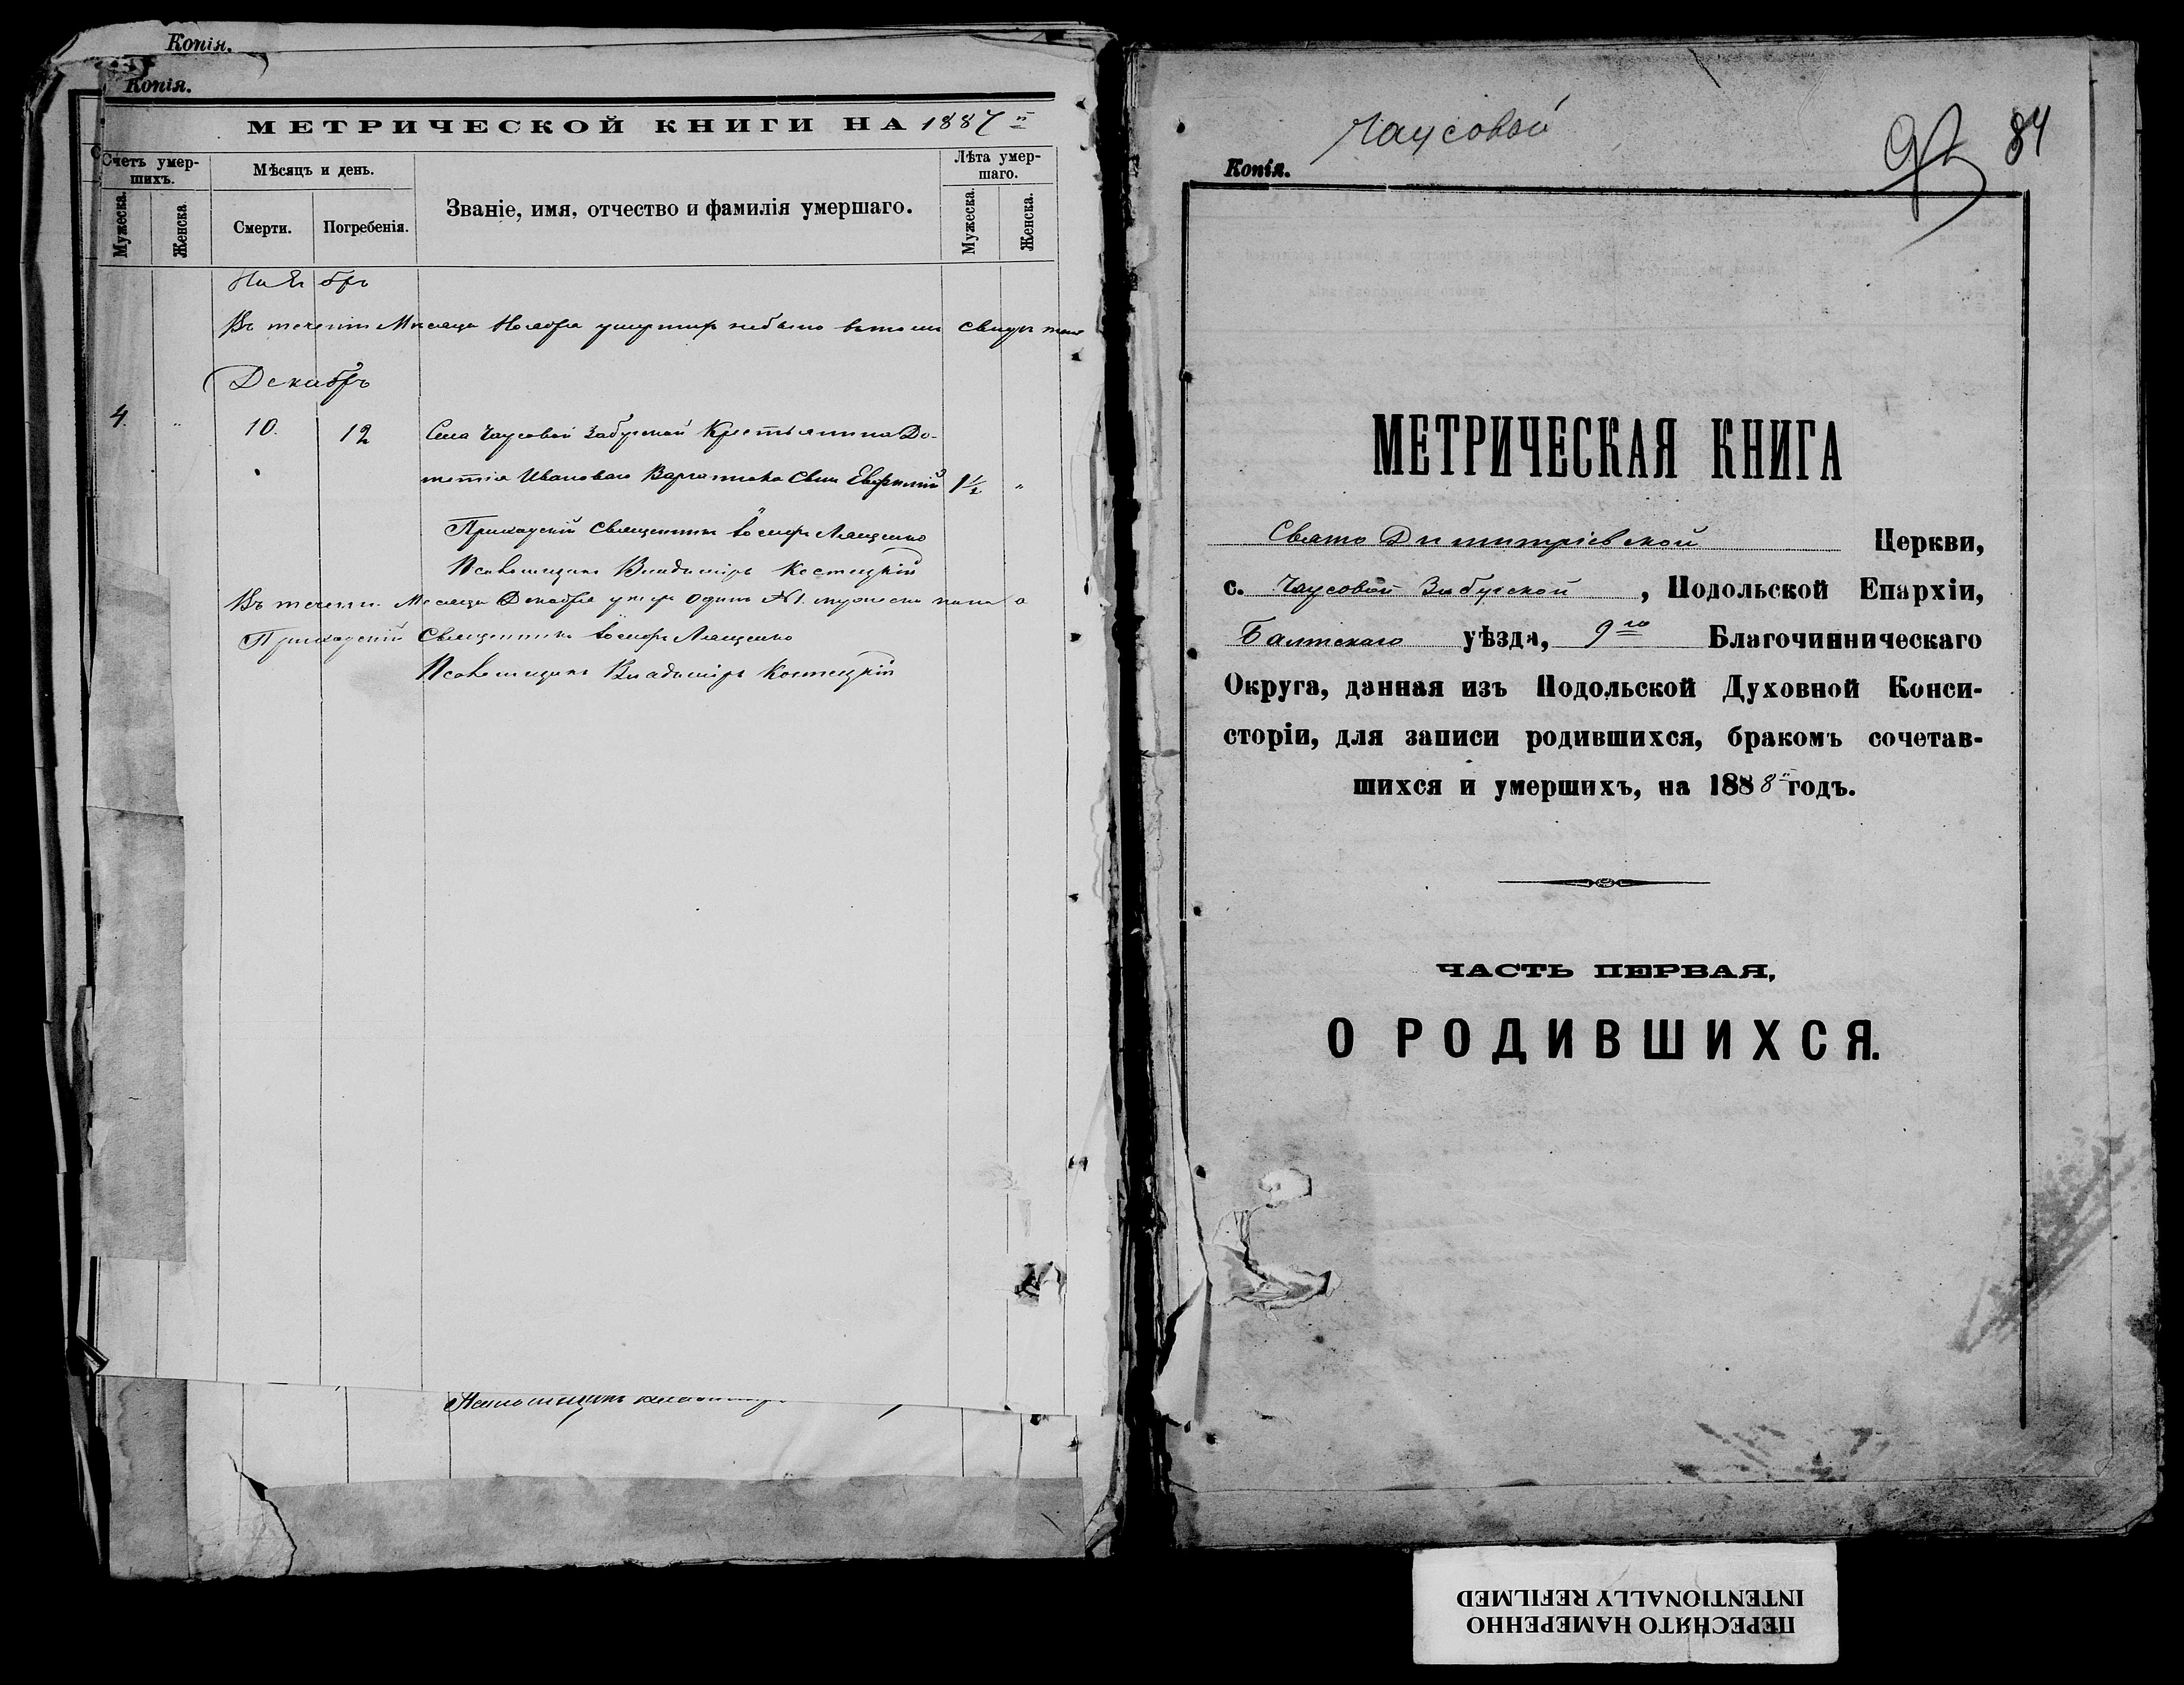 Копія.
Копія.
МЕТРИЧЕСКОЙ КНИГИ НА 1887 й
Счетъ умер-
шихъ.
Мѣсяцъ и день.
Званіе, имя, отчество и фамилія умершаго.
Лѣта умер-
шаго.
Мужеска.
Женска
Смерти.
Погребенія.
Мужеска
Женска.
Ноябрь
Въ теченіи Мѣсяца Ноября умершихъ небыло въ томъ свидѣт
Декабрь
4. " 10. 12 Села Чаусовой Забугской Крестьянина До-
Иванова сынъ Евфимій 1½ "
Приходскій Священникъ Іосифъ Лященко
Псаломщикъ Владиміръ Костецкій
Въ теченіи Месяца Декабря умеръ одинъ №1. мужеска пола
Приходскій Священникъ Іосифъ Лященко
Псаломщикъ Владиміръ Костецкій
Псаломщикъ
Чаусовой
84
Копія.
МЕТРИЧЕСКАЯ КНИГА
Свято Димитріевской Церкви,
с. Чаусовой Забугской, Подольской Епархіи,
Балтскаго уѣзда, 9го Благочинническаго
Округа, данная изъ Подольской Духовной Конси-
сторіи, для записи родившихся, бракомъ сочетав-
шихся и умершихъ, на 1888й годъ.
ЧАСТЬ ПЕРВАЯ,
О РОДИВШИХСЯ.
ПЕРЕСНЯТО НАМЕРЕННО
INTENTIONALLY REFILMED